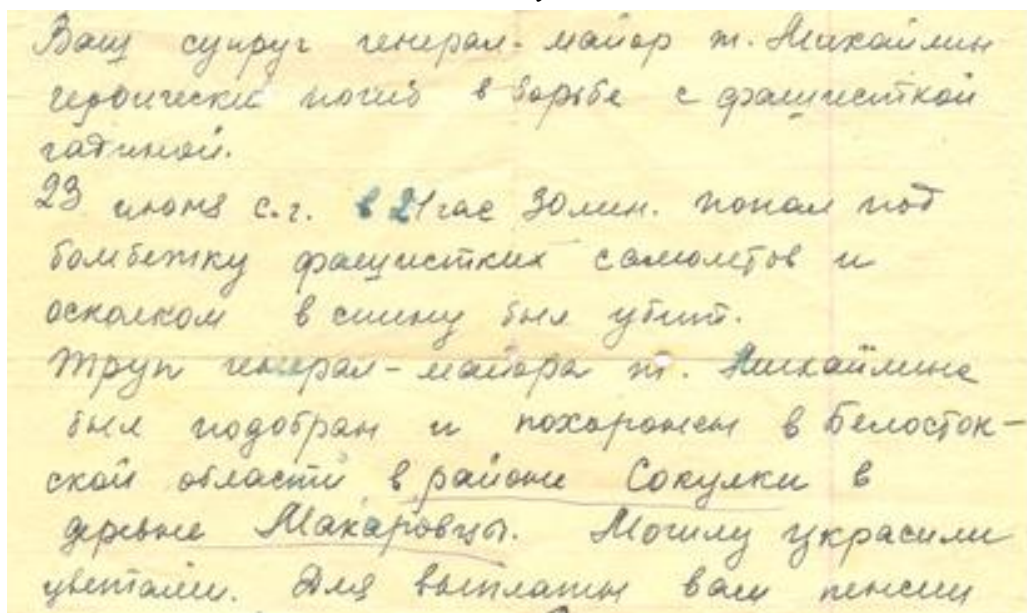 Ваш супруг генерал-майор т. Михайлин
героически погиб в борьбе с фашисткой
гадиной.
23 июня с.г. в 21 час 30 мин. попал под
бомбежку фашистких самолетов и
осколком в спину был убит.
Труп генерал-майора т. Михайлина
был подобран и похоронен в Белосток-
ской области в районе Сокулки в
деревне Макаровцы. Могилу украсили
цветами. Для выплаты вам пенсии